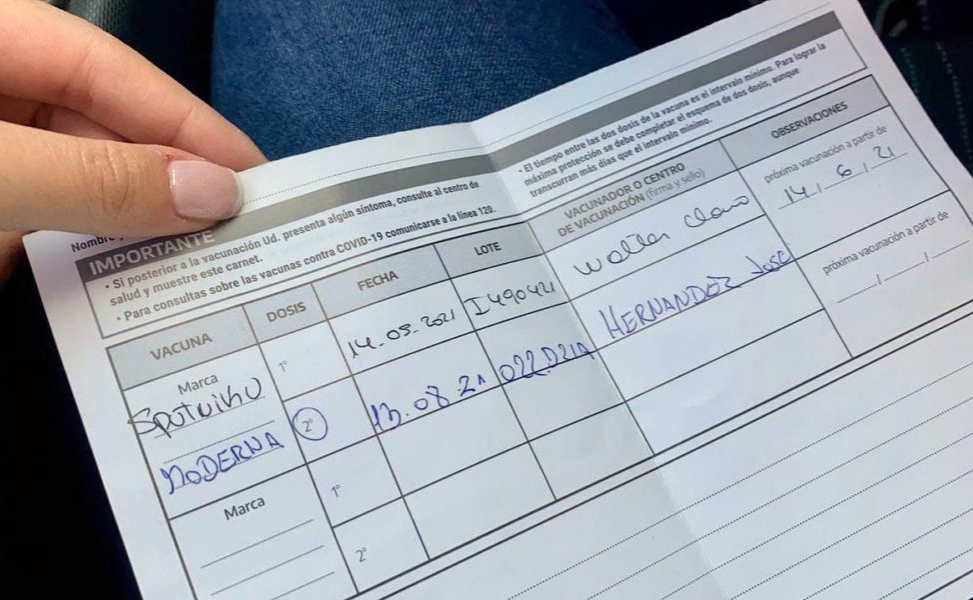 Nombre
IMPORTANTE
• Si posterior a la vacunación Ud. presenta algún síntoma, consulte al centro de
salud y muestre este carnet.
• Para consultas sobre las vacunas contra COVID-19 comunicarse a la línea 120.
• El tiempo entre las dos dosis de la vacuna es el intervalo mínimo. Para lograr la
máxima protección se debe completar el esquema de dos dosis, aunque
transcurran más días que el intervalo mínimo.
VACUNA
DOSIS
FECHA
LOTE
VACUNADOR O CENTRO
DE VACUNACIÓN (firma y sello)
OBSERVACIONES
Marca
Sputnik V
1°
14.05.2021
I490421
Walter
próxima vacunación a partir de
14, 6, 21
MODERNA
2°
13.08.21
022D21A
HERNANDEZ José
próxima vacunación a partir de
/ /
Marca
1°
2°